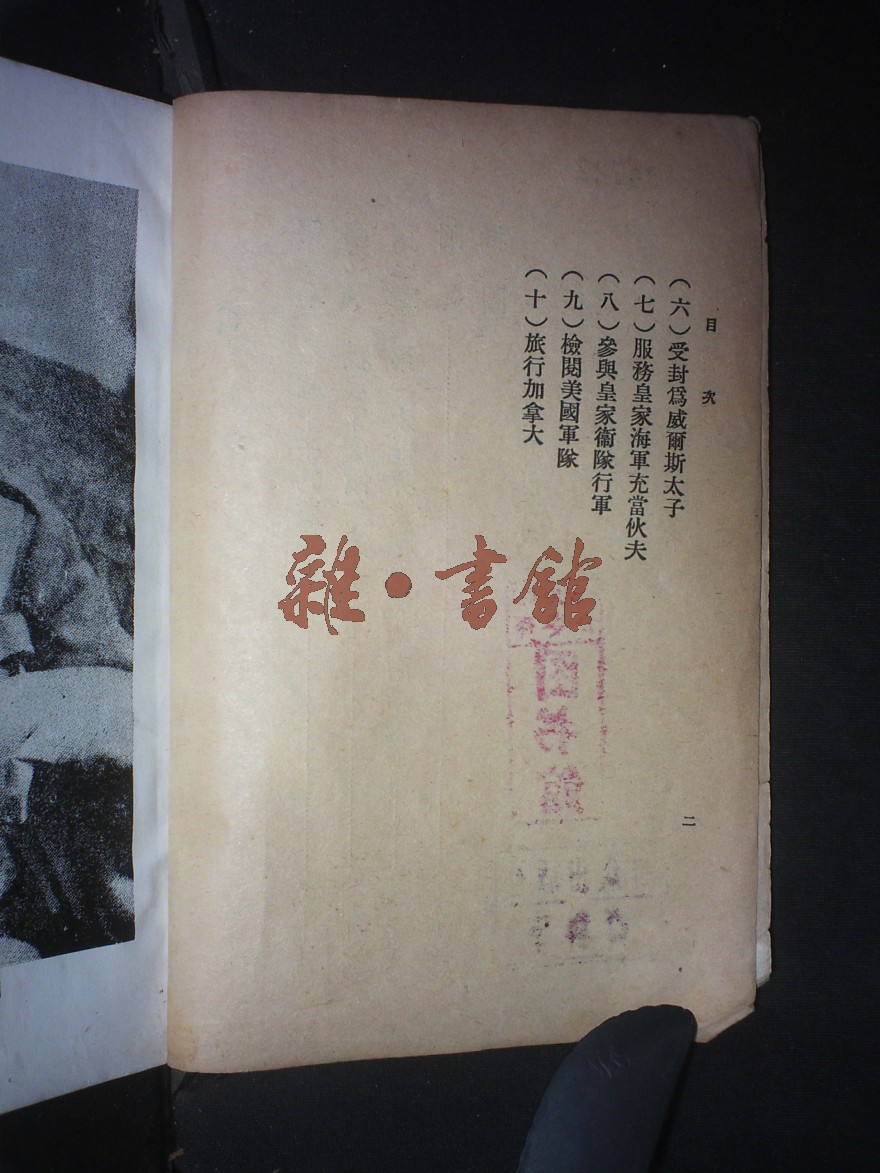 目次
（六）受封爲威爾斯太子
（七）服務皇家海軍充當伙夫
（八）參與皇家衞隊行軍
（九）檢閱美國軍隊
（十）旅行加拿大
二
雜·書館